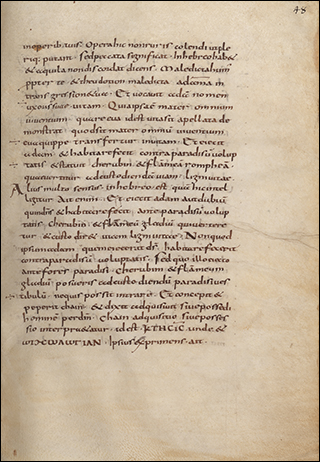 48
in operibus tuis. Opera hic non ruris colendi ut ple
riq; putant. sed peccata significat. In hebreo habe&
& aequila non discordat dicens. Maledicta humus
pp ter te & theodotion maledicta adama in
transgressione tua. Et vocavit adam nomen
uxoris suae vitam. Quia ipsa e mater omnium
viventium. quare eva id est vita sit apellata de
monstrat. quod sit mater omniu viventium.
eva quippe transfertur in vitam. Et eiecit
adam & habitare fecit contra paradisu volup
tatis & statuit cherubin & flammea rompheā.
quae vertitur ad custodiendā viam ligni vitae.
Alius multo sensus in hebreo est quā hic intel
ligitur. Ait enim. Et eiecit adam
& habitare fecit ante paradisū volup
tatis cherubin & flāmeū gladiū qui verte re
tur & custodir& viam ligni vitae. Non quod
ipsum adam quem eiecerat ds habitare fecerit
contra paradisū voluptatis. sed quo illo eiecto
ante fores paradisi cherubim & flāmeum
gladiū posuerit ad custodiendū paradisi ves
tibulū nequis possit intrare. Et concepit &
peperit chain & dixit adquisivi sive possedi
hominē per dm. Chain adquisitio sive posses
sio interpr&atur id est ΚΤΗϹΙϹ unde &
Ipsius exprimens ait.